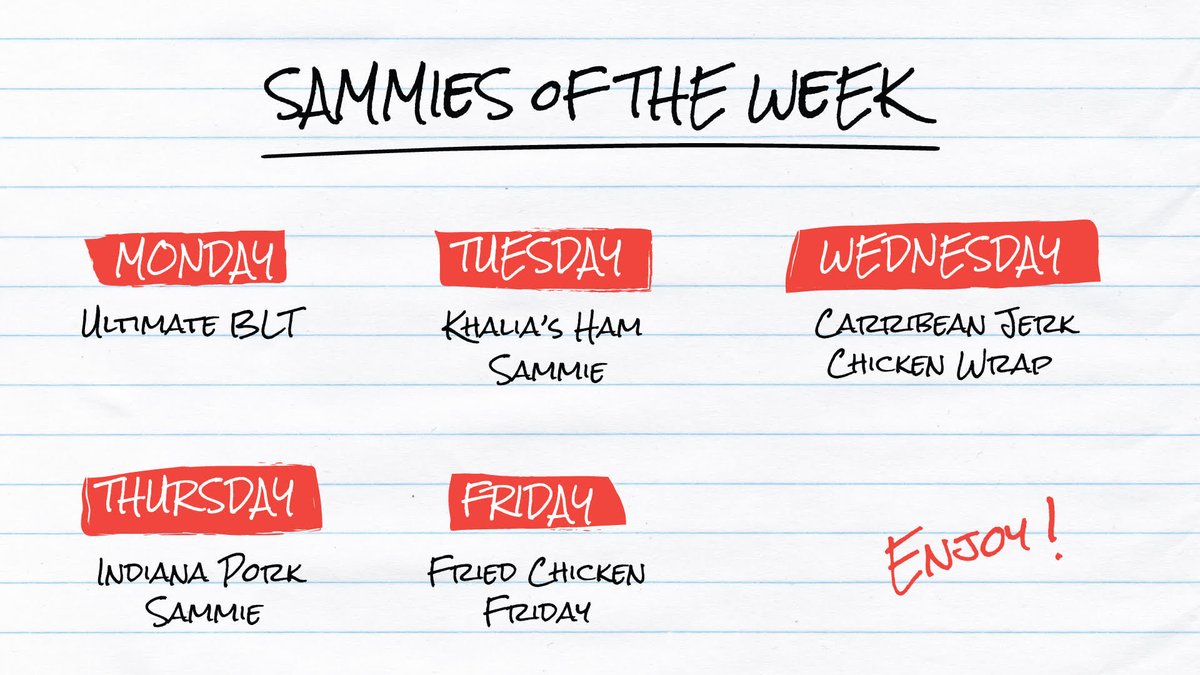 SAMMIES OF THE WEEK
MONDAY
ULTIMATE BLT
TUESDAY
KHALIA'S HAM
SAMMIE
WEDNESDAY
CARRIBEAN JERK
CHICKEN WRAP
THURSDAY
INDIANA PORK
SAMMIE
FRIDAY
FRIED CHICKEN
FRIDAY
ENJOY!